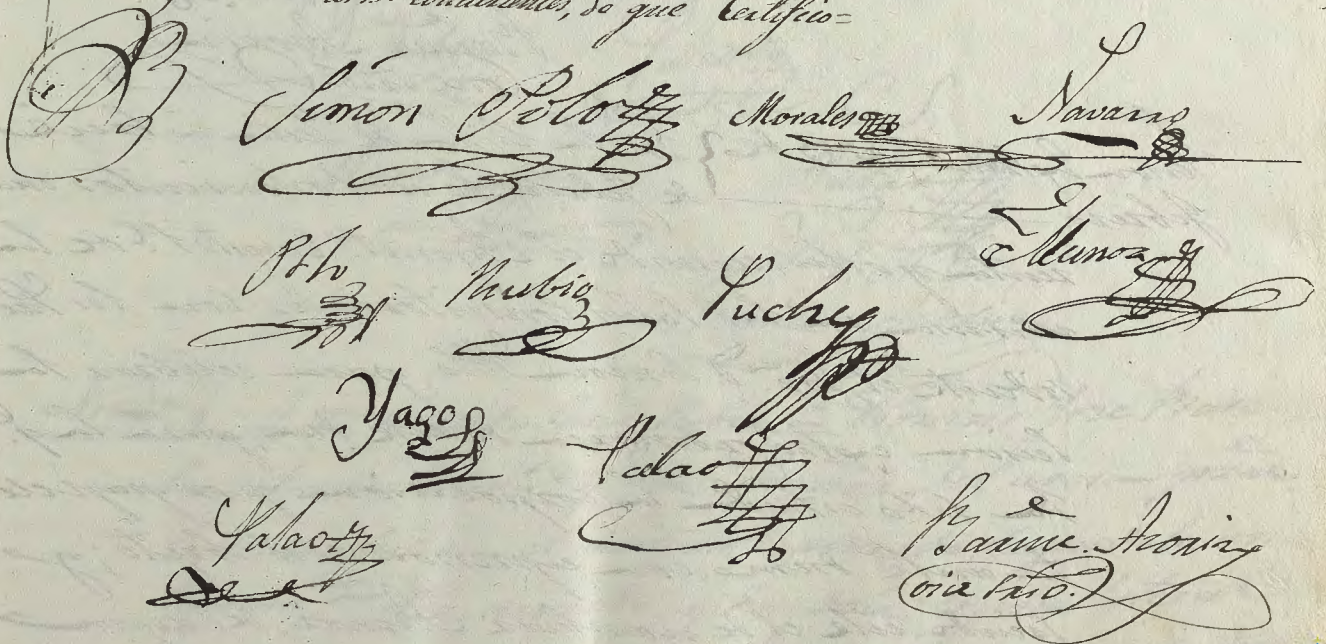 concurrentes, de que Certifico=
Simón Polo Morales Navarro
Polo Rubio Puche Muñoz
Yago Palao
Palao Barmē. Azorin
vice Srio.